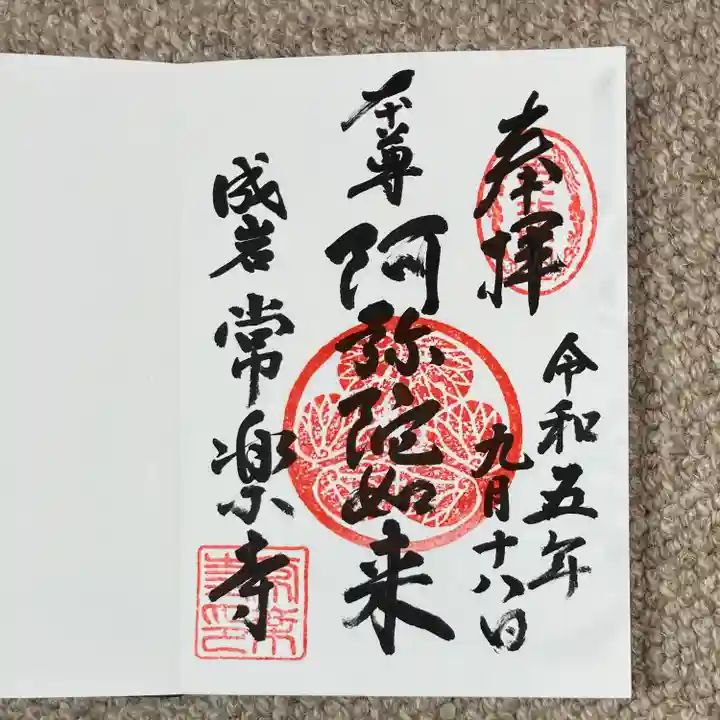 奉拝
令和五年
九月十八日
本尊
阿弥陀如来
成岩 常楽寺